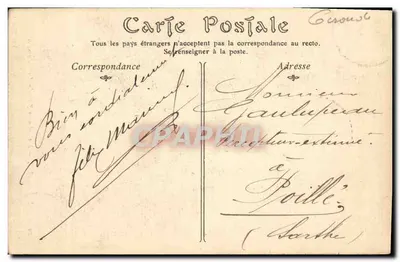 Gironde
Carte Postale
Tous les pays étrangers n'acceptent pas la correspondance au recto.
Se renseigner à la poste.
Correspondance
Adresse
Bien à
vous cordialement
félix
Monsieur
à
Poillé
(Sarthe)
CARTORUM